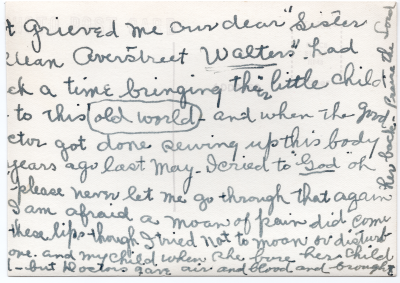 t grieved me our dear "Sister
Jean Averstreet Walters" had
ch a time bringing their little child
to this old world - and when the good
ctor got done sewing up this body
years ago last May. I cried to God oh
please never let me go through that again
I am afraid a moan of pain did come
these lips though I tried not to moan or disturb
one. and my child when she bore her child
- but Doctors gave air and blood and brought
her back - Praise the Lord